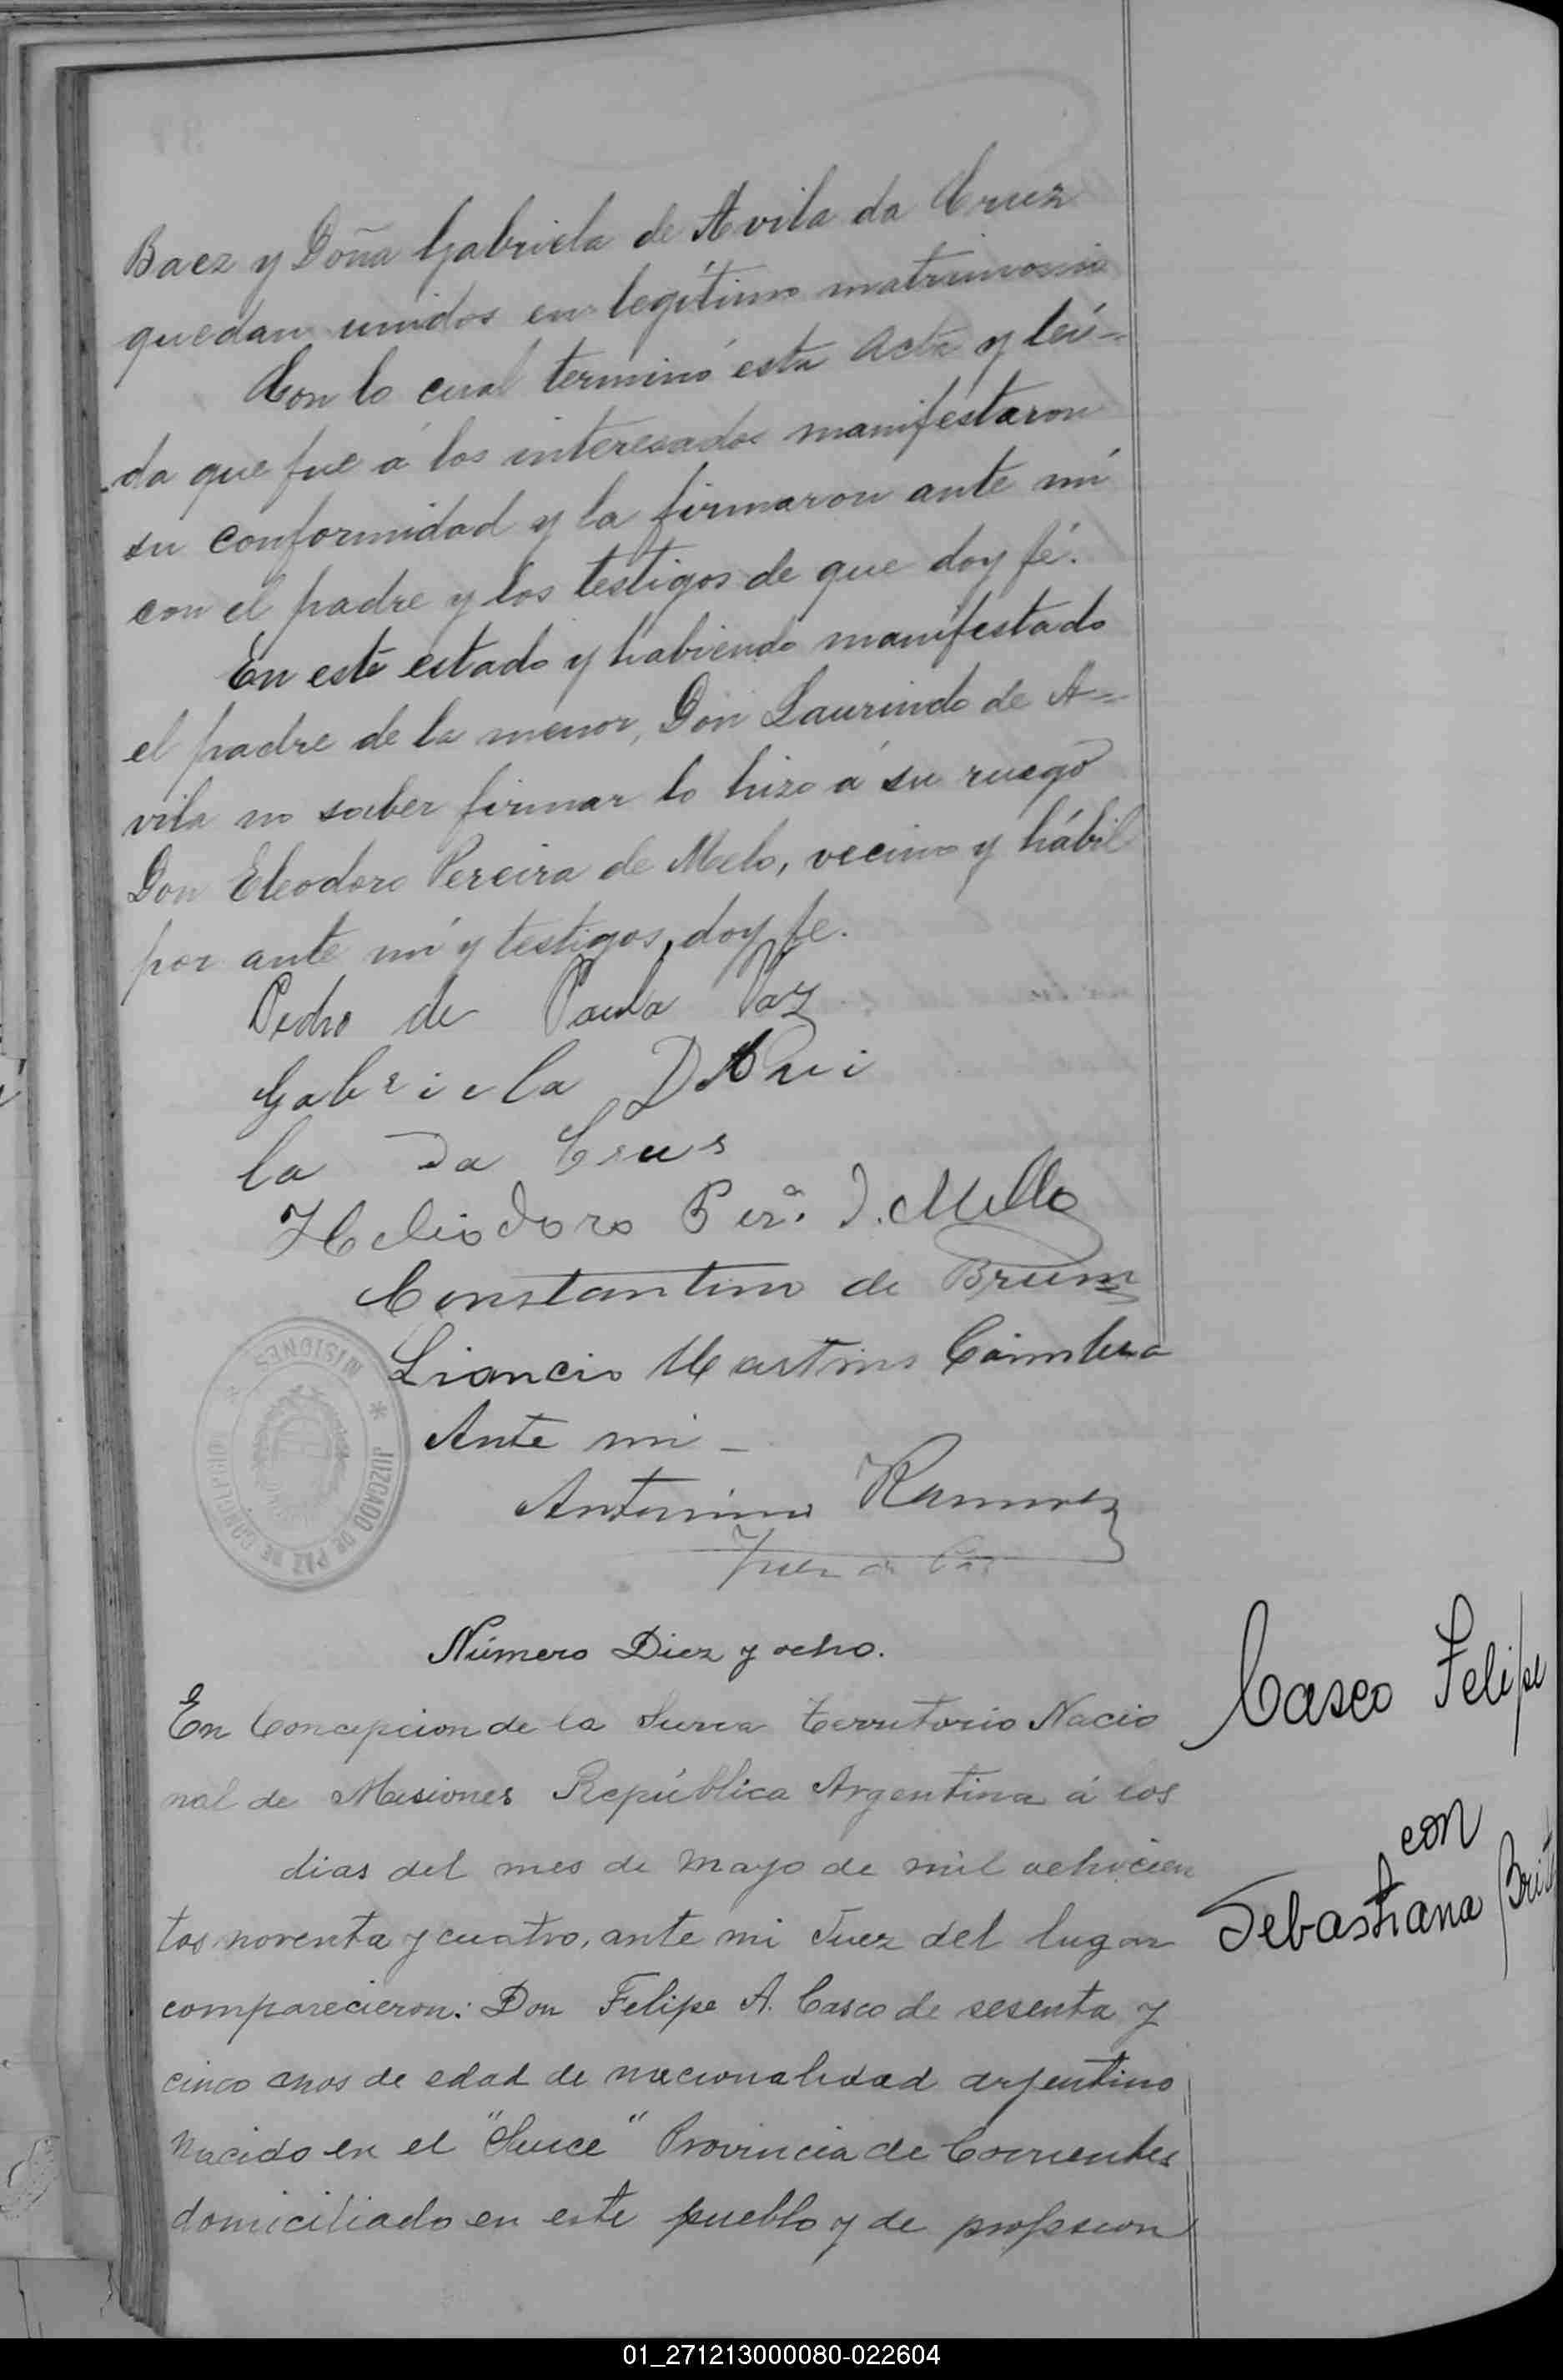 Baez y Doña Gabriela de Avila da Cruz
quedan unidos en legítimo matrimonio
Con lo cual terminó esta Acta y leí=
da que fue á los interesados manifestaron
su conformidad y la firmaron ante mí
con el padre y los testigos de que doy fé.
En este estado y habiendo manifestado
el padre de la menor, Don Laurindo de A=
vila no saber firmar lo hizo á su ruego
Don Eleodoro Pereira de Melo, vecino y hábil
por ante mí y testigos, doy fe.
Pedro de Paula Vaz
Gabriela
la Da Crus
Heliodoro Perª. d. Mello
Constantino de Brum
Liancio Martins Coimbra
Ante mi -
Antonino Ramirez
Juez de Paz
MISIONES * JUZGADO DE PAZ DE CONCEPCION *
Número Diez y ocho.
En Concepcion de la Sierra Territorio Nacio
nal de Misiones República Argentina á los
dias del mes de Mayo de mil ochocien
tos noventa y cuatro, ante mi Juez del lugar
comparecieron: Don Felipe A. Casco de sesenta y
cinco anos de edad de nacionalidad arjentino
Nacido en el "Sauce" Provincia de Corrientes
domiciliado en este pueblo y de profesion
Casco Felipe
con
Sebastiana Brit
01_271213000080-022604